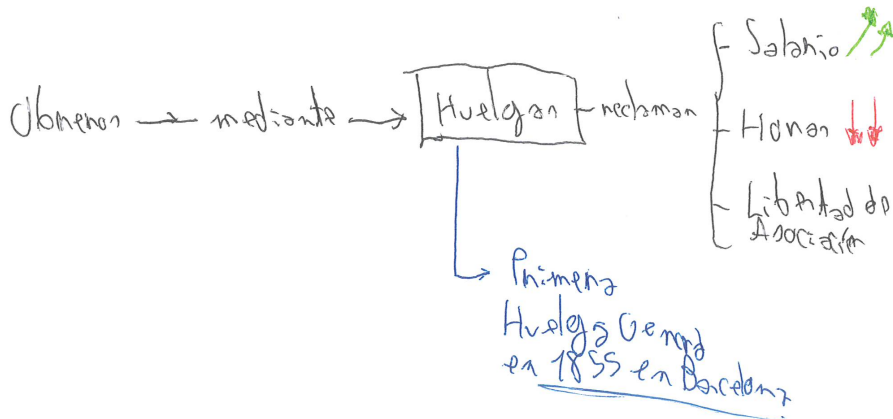 Obreros → mediante → Huelgas - reclaman
- Salario
- Horas
- Libertad de
Asociación
Primera
Huelga General
en 1855 en Barcelona